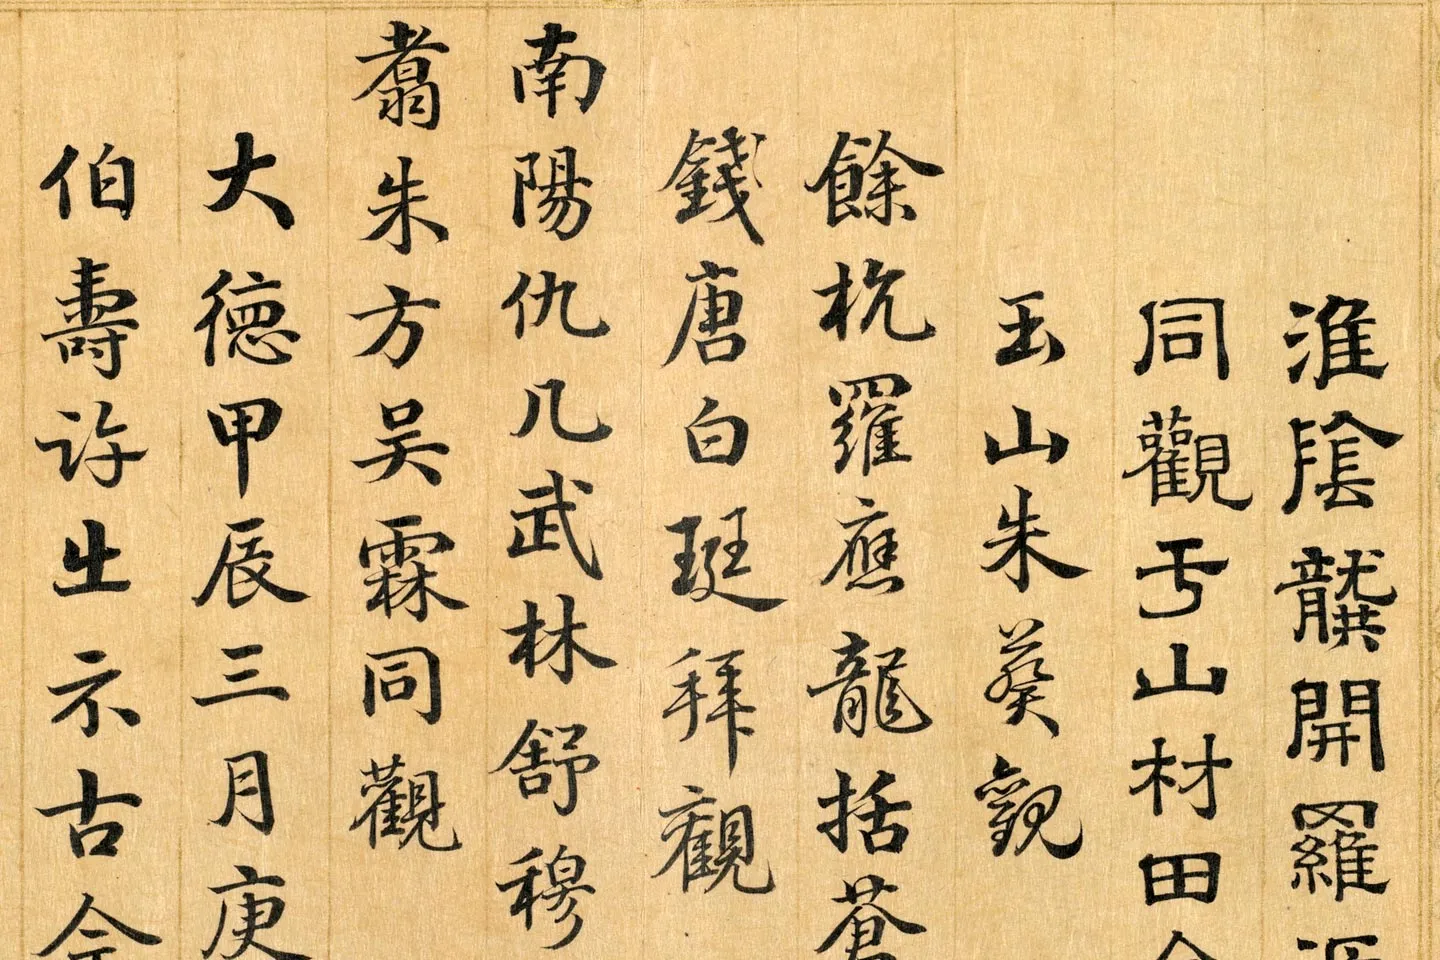 淮陰龔開羅
同觀于山材田
玉山朱葵觀
餘杭羅應龍括蒼
錢唐白珽拜觀
南陽仇几武林舒穆
翥朱方吳霖同觀
大德甲辰三月庚
伯壽許出示古會